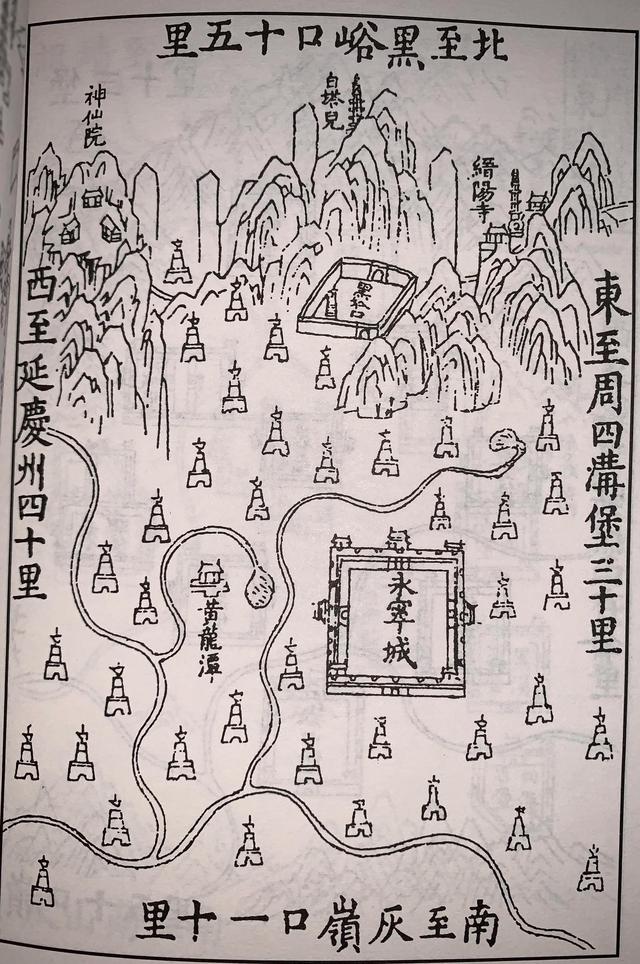 北至黑峪口十五里
白塔兒
神仙院
縉陽寺
黑峪口
東至周四溝堡三十里
西至延慶州四十里
永寧城
黃龍潭
南至灰嶺口一十里